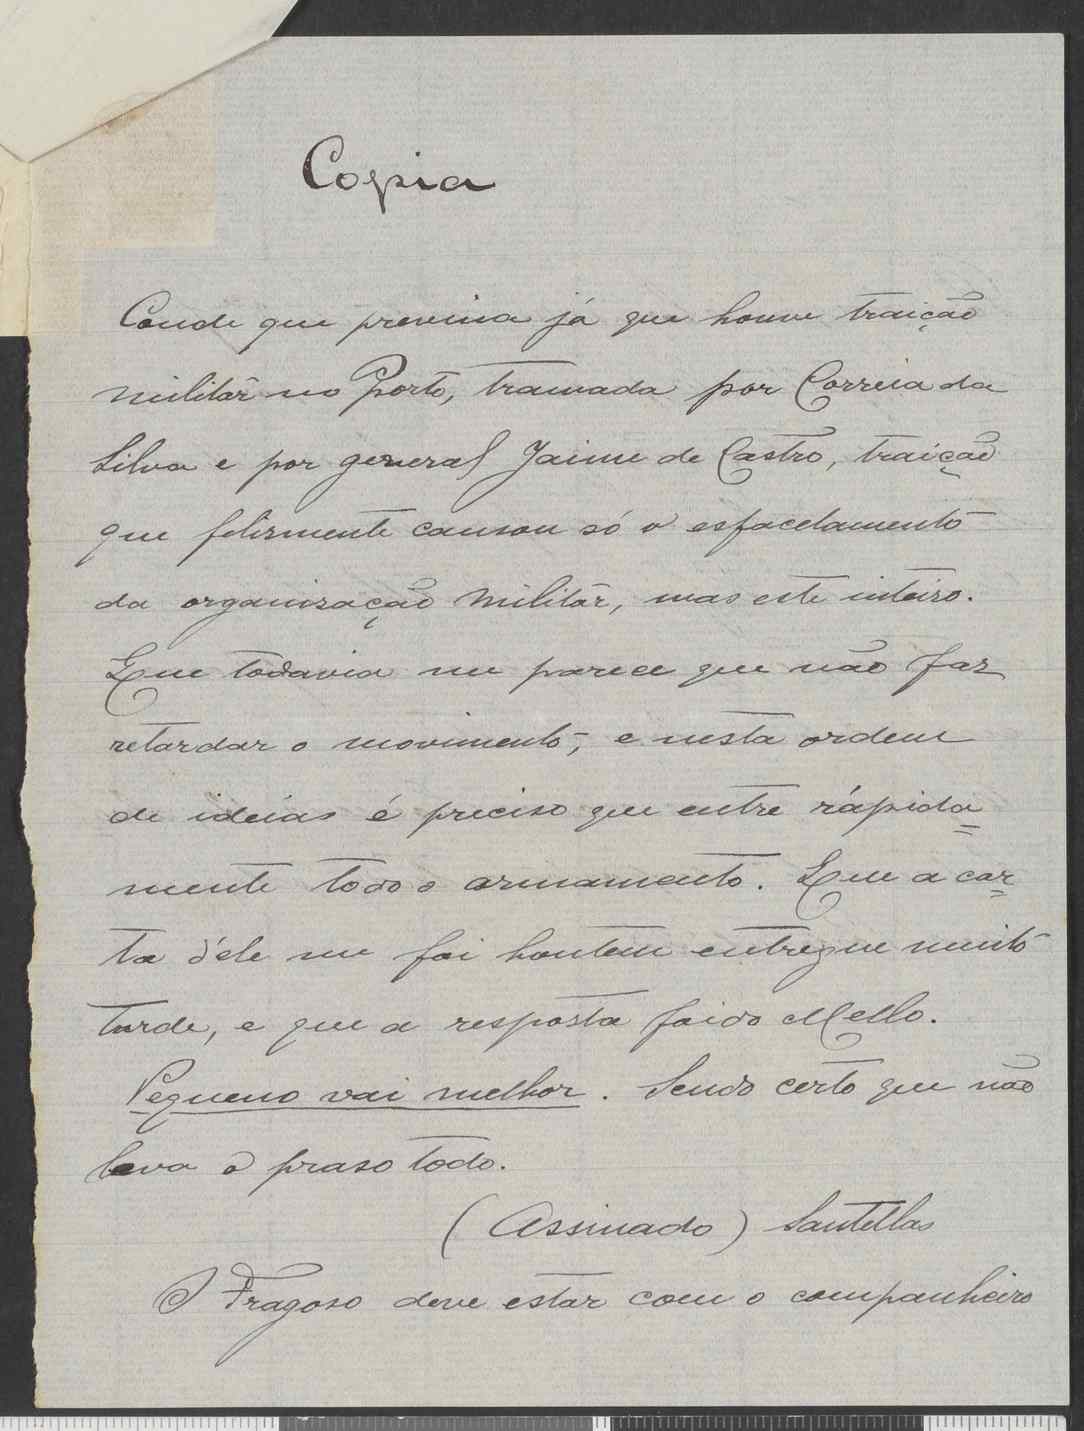 Copia
Conde que previna já que houve traição
militar no Porto, tramada por Correia da
Silva e por general Jaime de Castro, traição
que felismente causou só o esfacelamento
da organisação militar, mas este inteiro.
Que todavia me parece que não faz
retardar o movimento, e nesta ordem
de ideias é preciso que entre rápida=
mente todo o armamento. Que a car=
ta d'ele me foi hontem entregue muito
tarde, e que a resposta foi do Mello.
Pequeno vai melhor. Sendo certo que não
leva o praso todo.
(Assinado) Santellas
O Fragoso deve estar com o companheiro